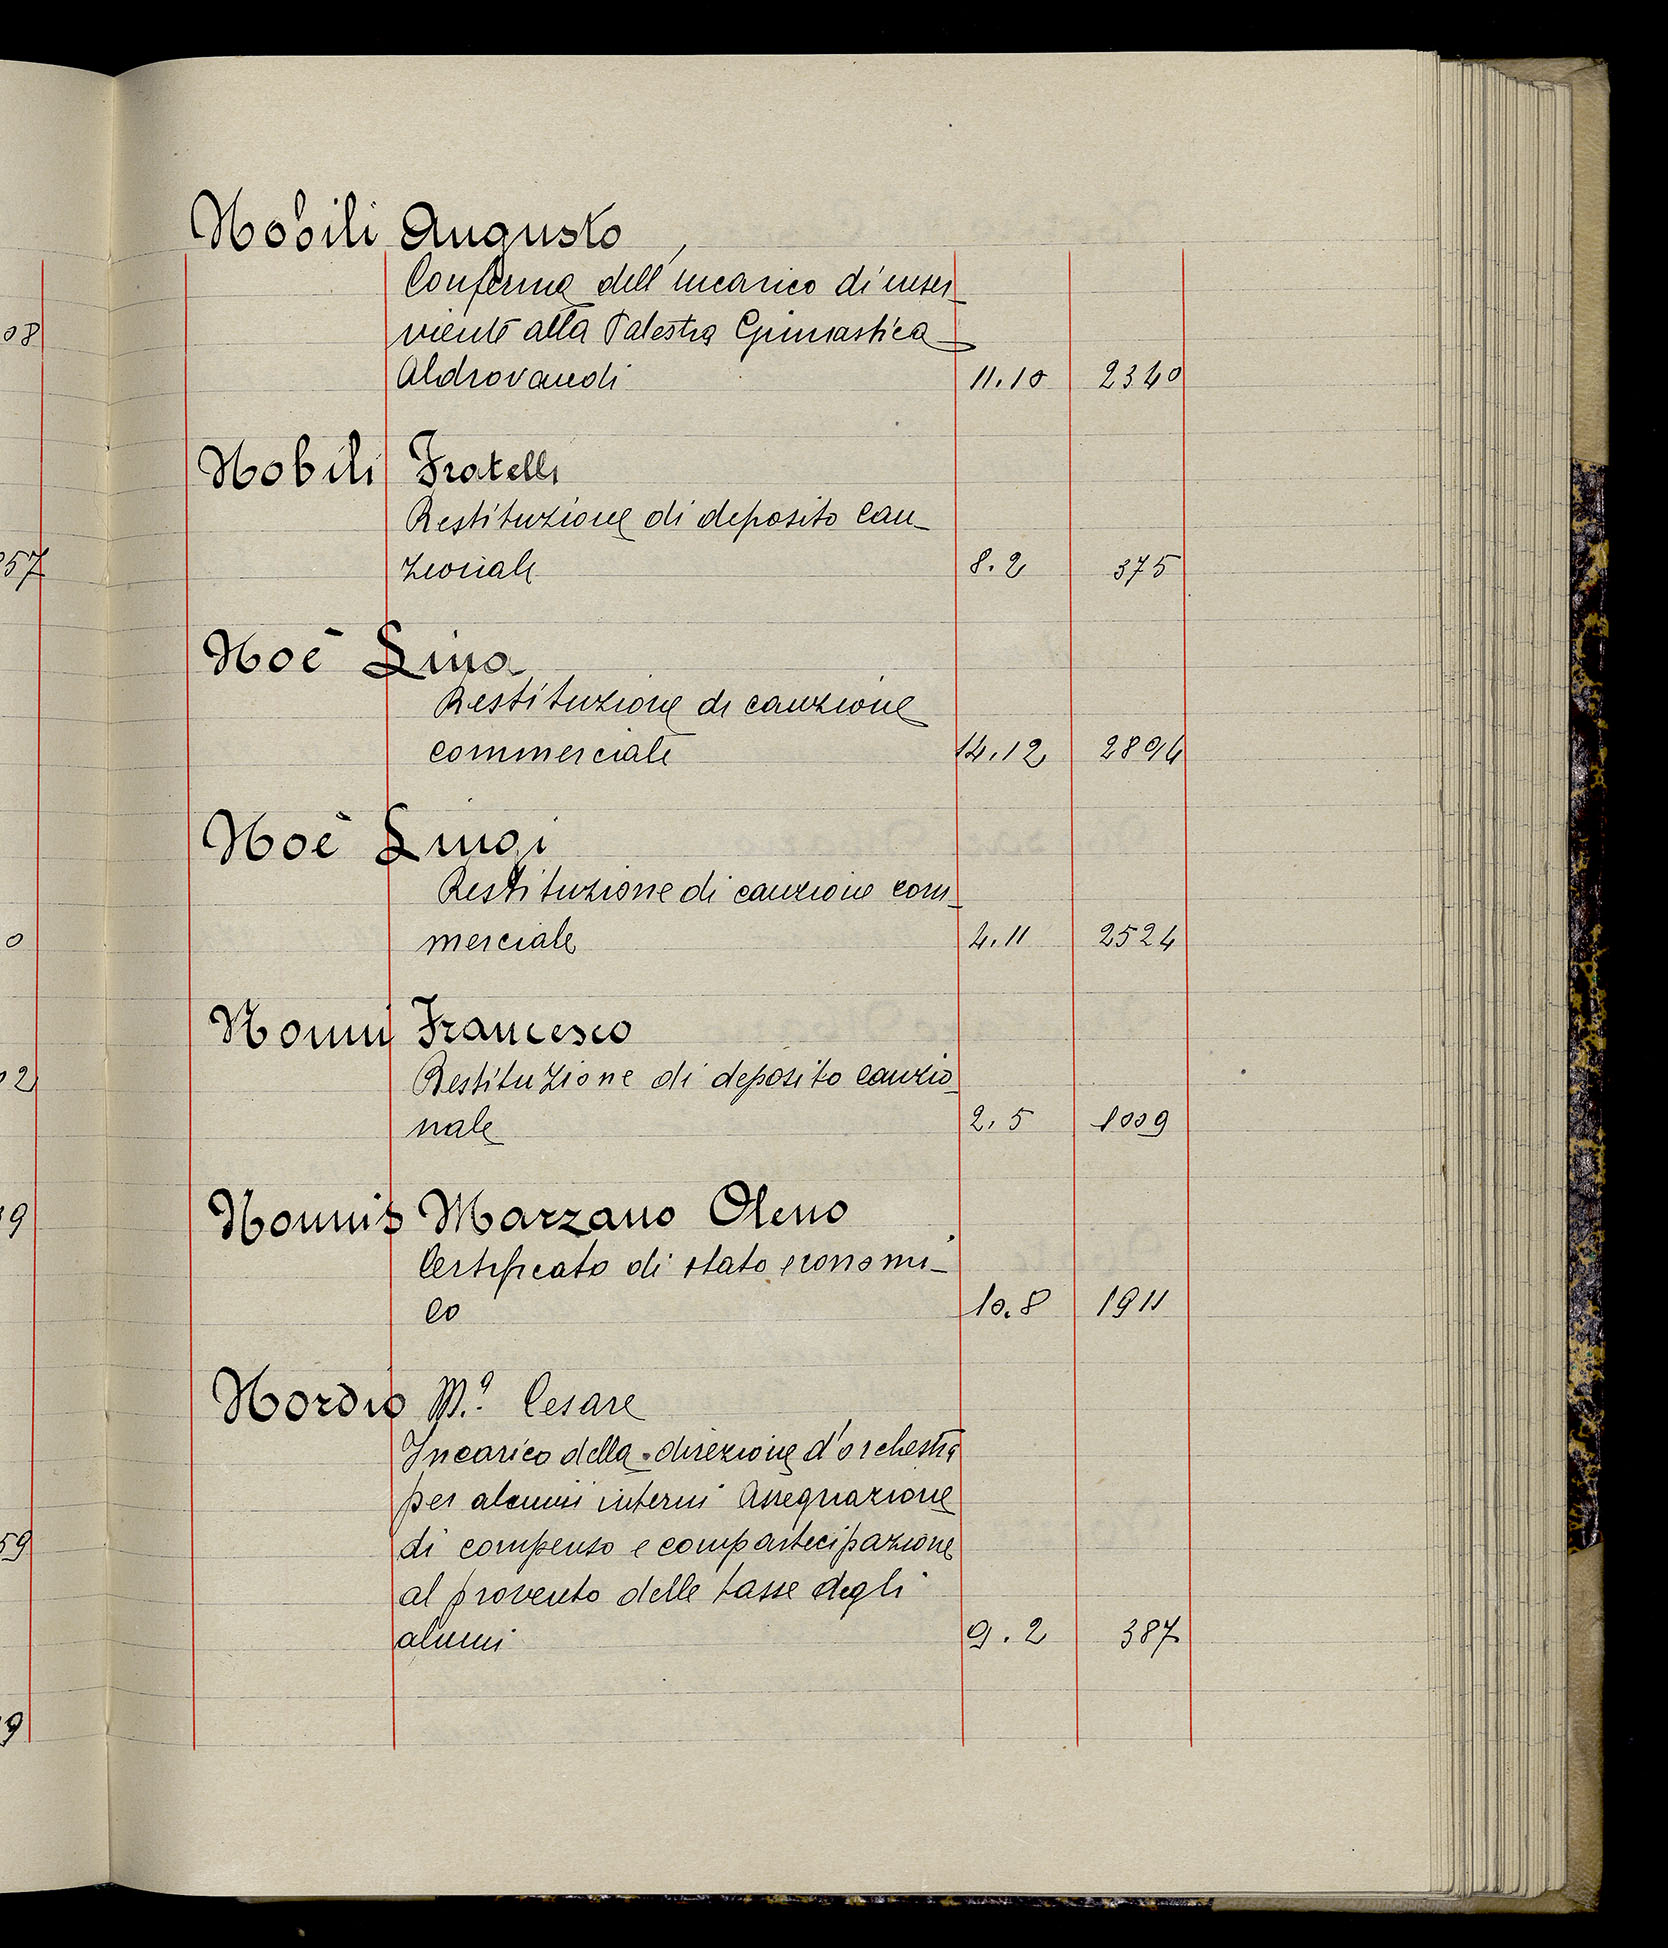 Nobili Augusto
Conferma dell'incarico di inser-
viente alla Palestra Ginnastica
Aldrovandi 11.10 2340
08
Nobili Fratelli
Restituzione di deposito cau-
zionale 8.2 375
57
Noè Lina
Restituzione di cauzione
commerciale 14.12 2894
Noè Luigi
Restituzione di cauzione com-
merciale 4.11 2524
0
Nonni Francesco
Restituzione di deposito cauzio-
nale 2.5 1009
02
Nonnis Marzano Oleno
Certificato di stato economi-
co 10.8 1911
19
Nordio M.º Cesare
Incarico della direzione d'orchestra
per alunni interni Assegnazione
di compenso e compartecipazione
al provento delle tasse degli
alunni 9.2 387
59
9